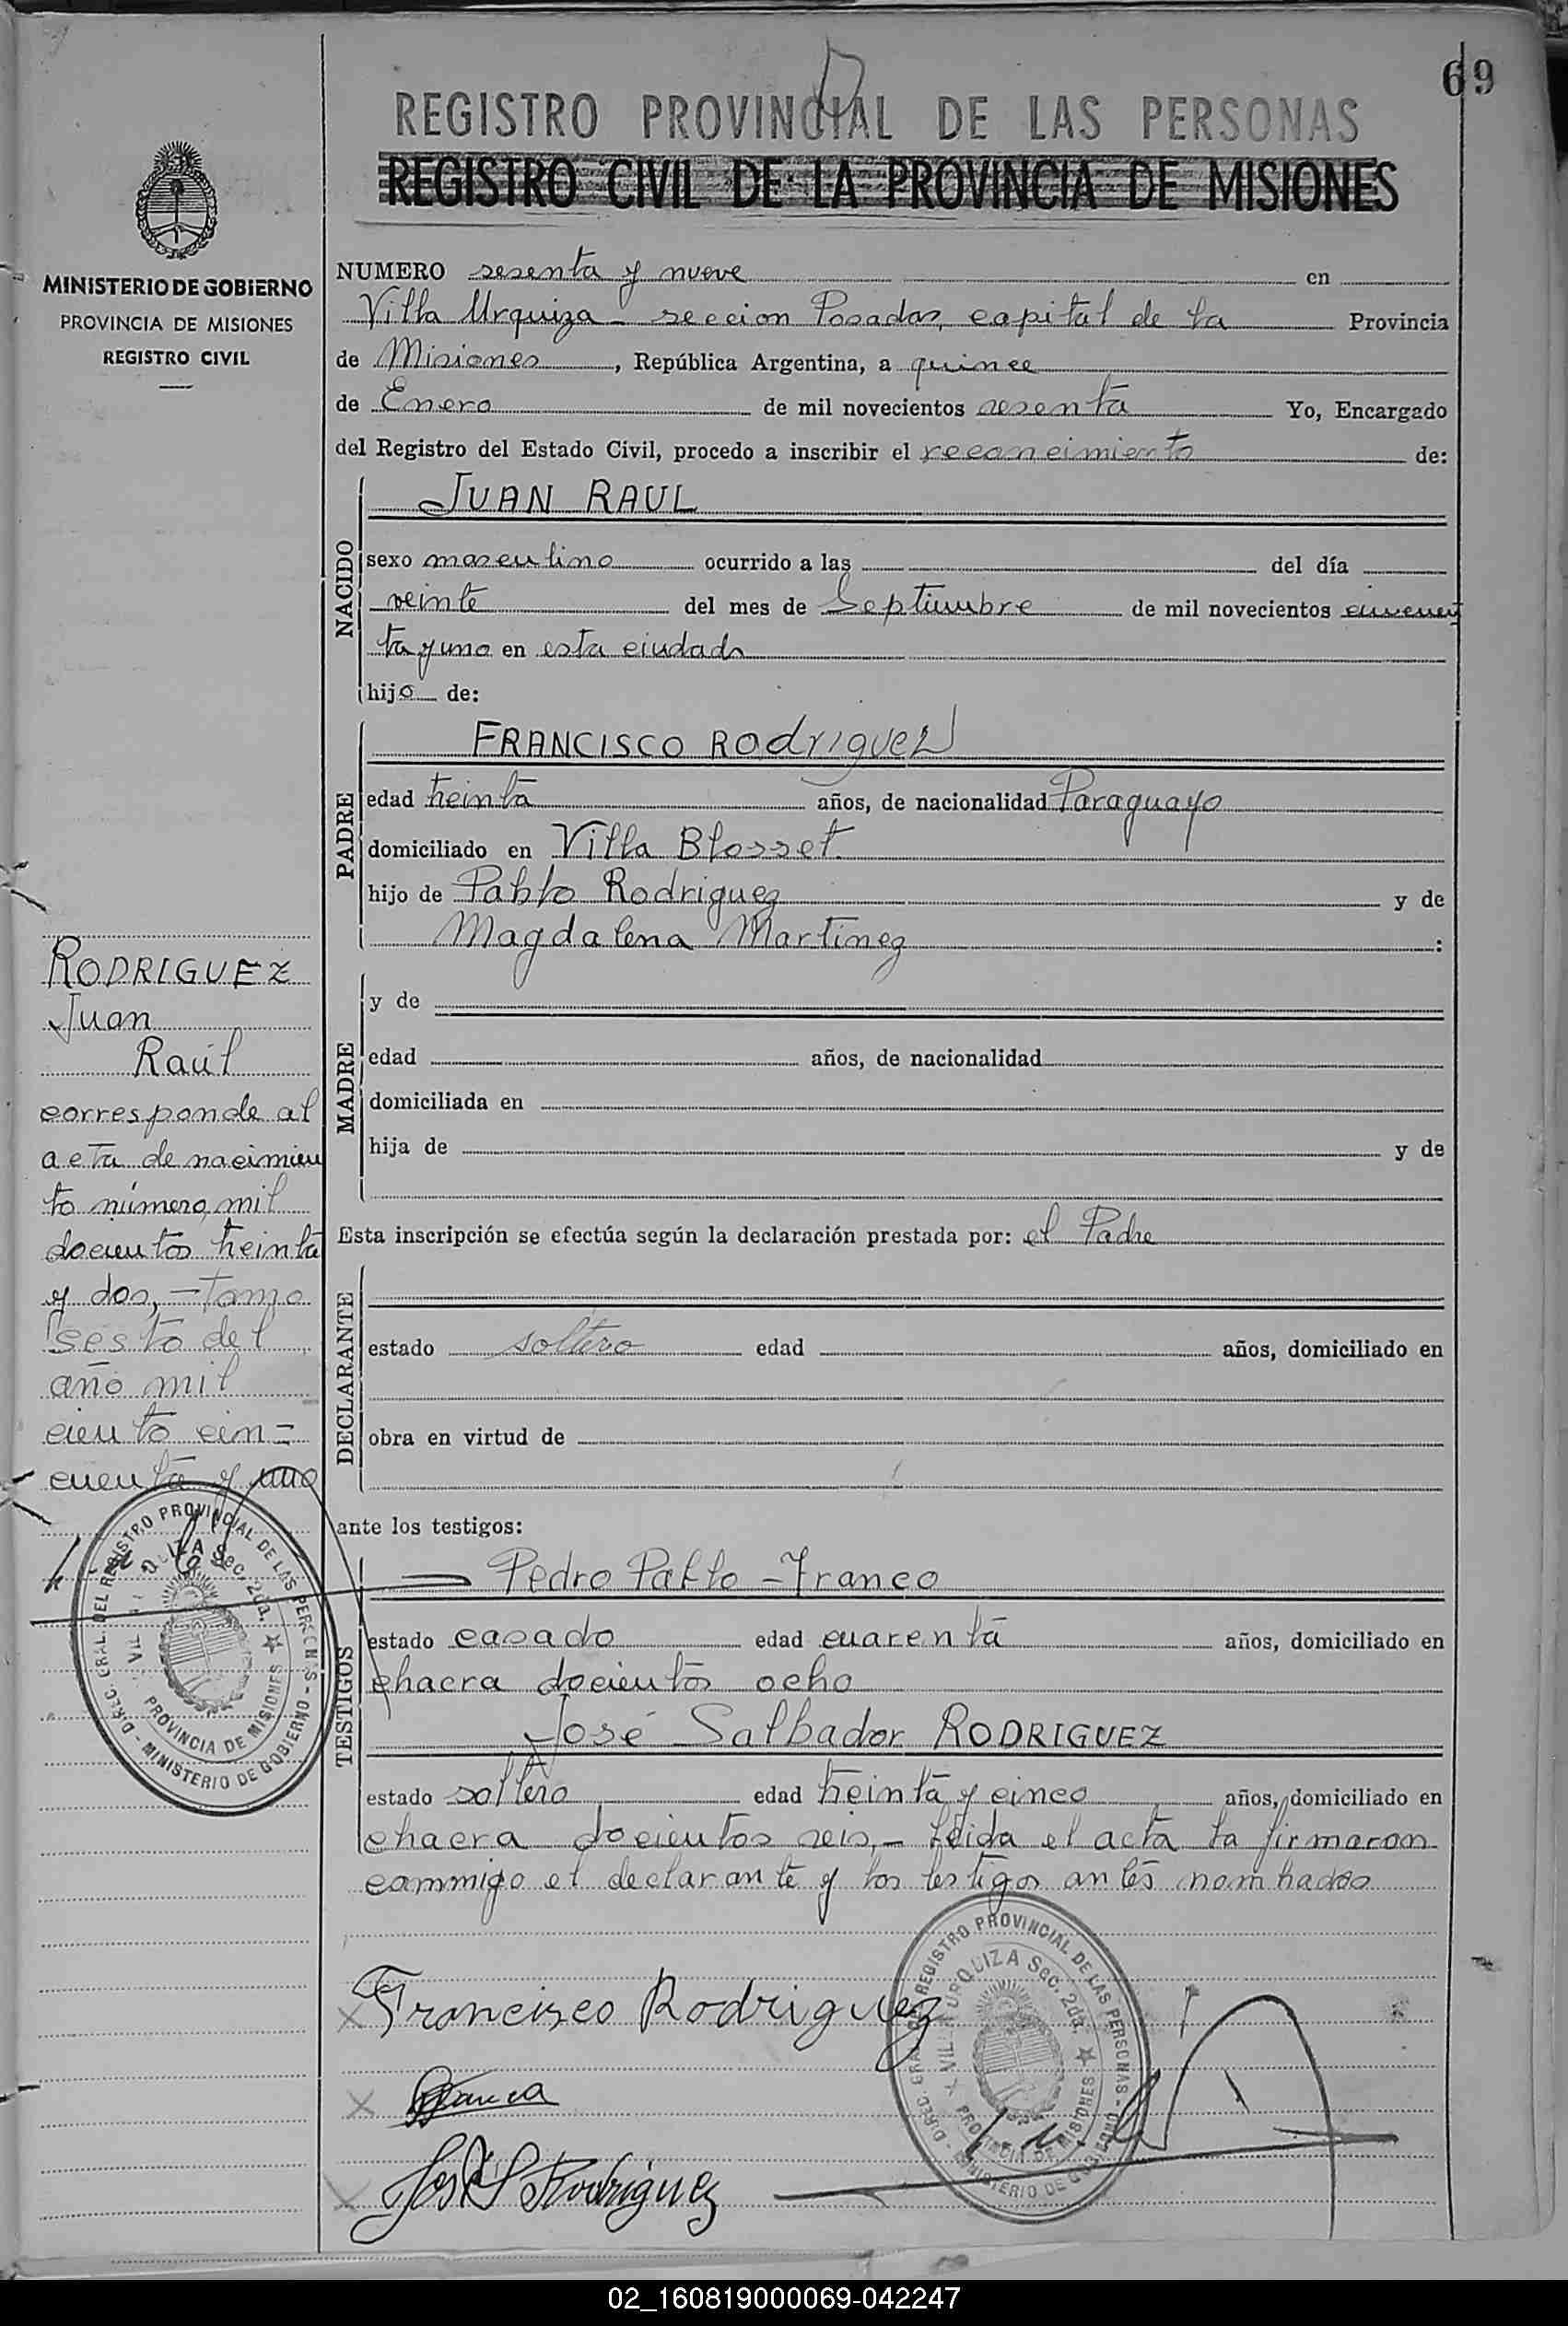 69
REGISTRO PROVINCIAL DE LAS PERSONAS
REGISTRO CIVIL DE LA PROVINCIA DE MISIONES
MINISTERIO DE GOBIERNO
PROVINCIA DE MISIONES
REGISTRO CIVIL
NUMERO sesenta y nueve en
Villa Urquiza - seccion Posadas, capital de la Provincia
de Misiones, República Argentina, a quince
de Enero de mil novecientos sesenta Yo, Encargado
del Registro del Estado Civil, procedo a inscribir el reconcimiento de:
NACIDO
JUAN RAUL
sexo masculino ocurrido a las del día
veinte del mes de Septiembre de mil novecientos cincuen
ta y uno en esta ciudad
hijo de:
PADRE
FRANCISCO RodrigueZ
edad treinta años, de nacionalidad Paraguayo
domiciliado en Villa Blosset.
hijo de Pablo Rodriguez y de
Magdalena Martinez :
MADRE
y de
edad años, de nacionalidad
domiciliada en
hija de y de
Esta inscripción se efectúa según la declaración prestada por: el Padre
DECLARANTE
estado soltero edad años, domiciliado en
obra en virtud de
ante los testigos:
TESTIGOS
Pedro Pablo - Franco
estado casado edad cuarenta años, domiciliado en
chacra docientos ocho
José Salbador RODRIGUEZ
estado soltero edad treinta y cinco años, domiciliado en
chacra docientos seis, - leida el acta la firmaron
commigo el declarante y los testigos antes nombrados
Francisco Rodriguez
Franco
José S Rodriguez
RODRIGUEZ
Juan
Raúl
corresponde al
acta de nacimien
to número, mil
docientos treinta
y dos, - Tomo
sesto del
año mil
ciento cin=
cuenta y uno
DIREC. GRAL. DEL REGISTRO PROVINCIAL DE LAS PERSONAS - MINISTERIO DE GOBIERNO
VILLA URQUIZA Sec. 2da. PROVINCIA DE MISIONES
DIREC. GRAL. DEL REGISTRO PROVINCIAL DE LAS PERSONAS - MINISTERIO DE GOBIERNO
VILLA URQUIZA Sec. 2da. PROVINCIA DE MISIONES
02_160819000069-042247